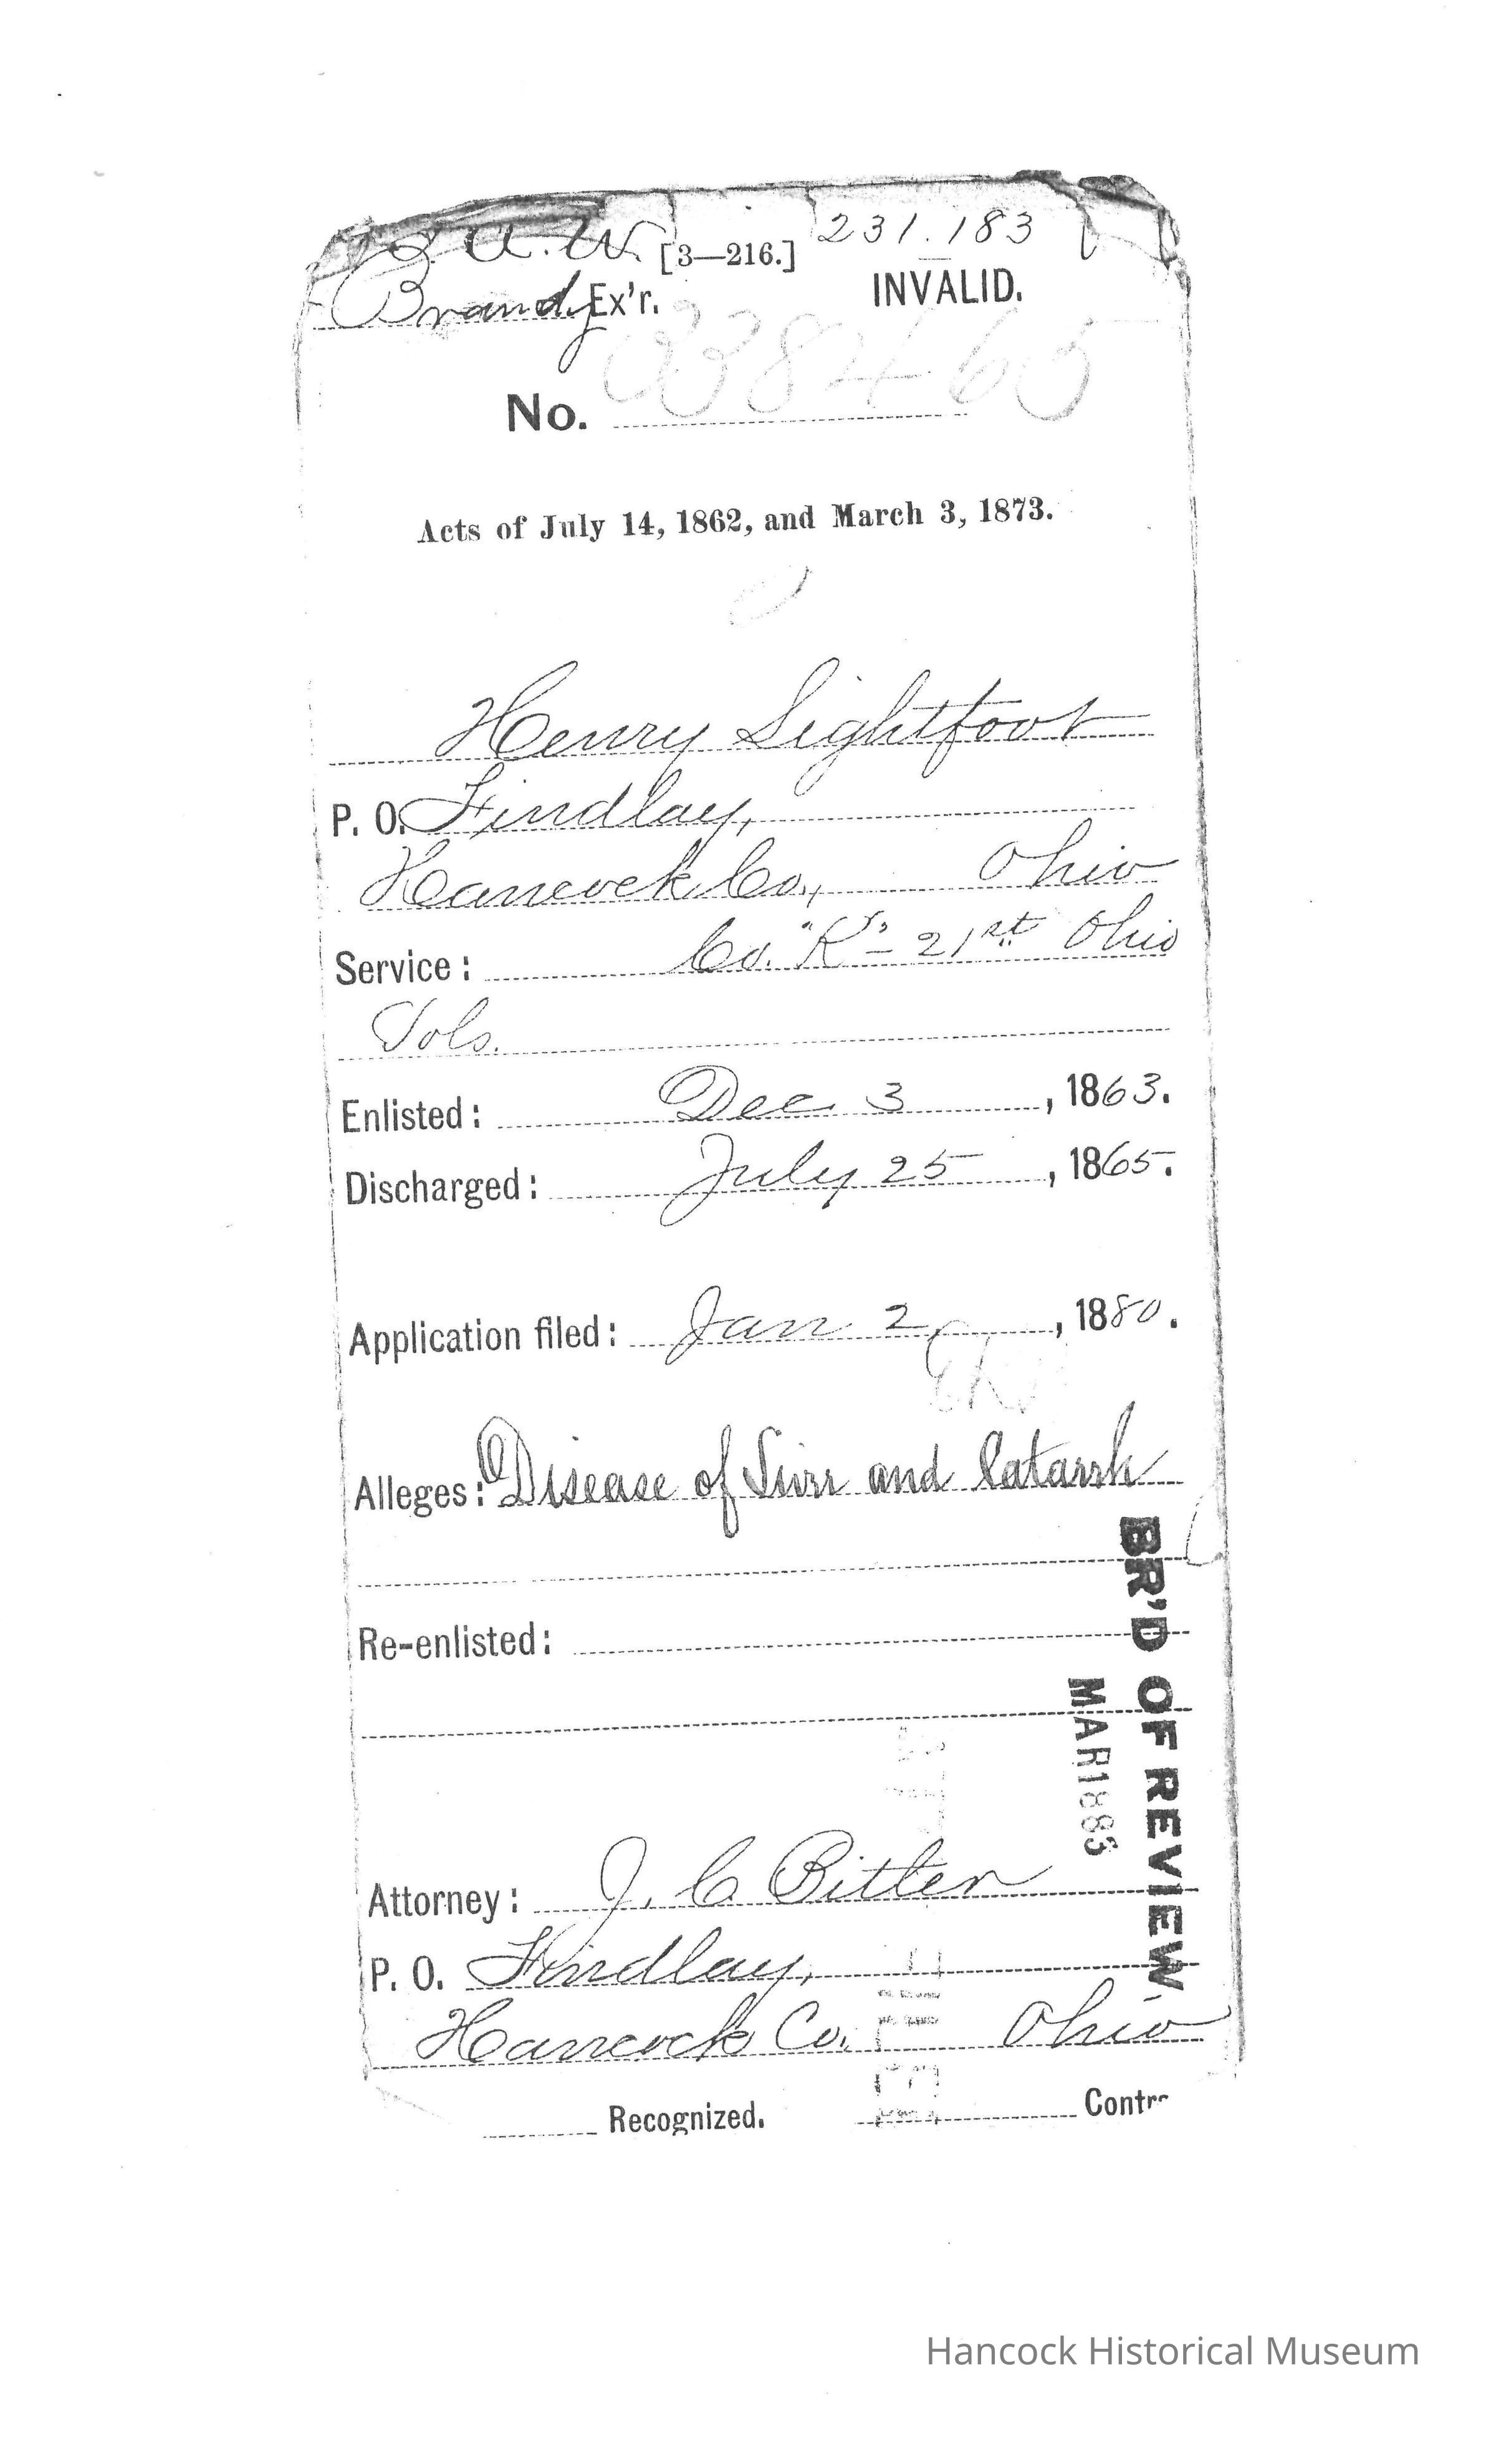 a. W. [3—216.] 231.183
Brandy Ex'r. INVALID.
No. 338465
Acts of July 14, 1862, and March 3, 1873.
Henry Lightfoot
P. O. Findlay,
Hancock Co., Ohio
Service: Co. "K" - 21st Ohio
Vols.
Enlisted: Dec 3, 1863.
Discharged: July 25, 1865.
Application filed: Jan 2, 1880.
Alleges: Disease of Liver and Catarrh
Re-enlisted:
BR'D OF REVIEW
MAR 1883
Attorney: J. C. Bitler
P. O. Findlay,
Hancock Co. Ohio
Recognized. Contr
Hancock Historical Museum